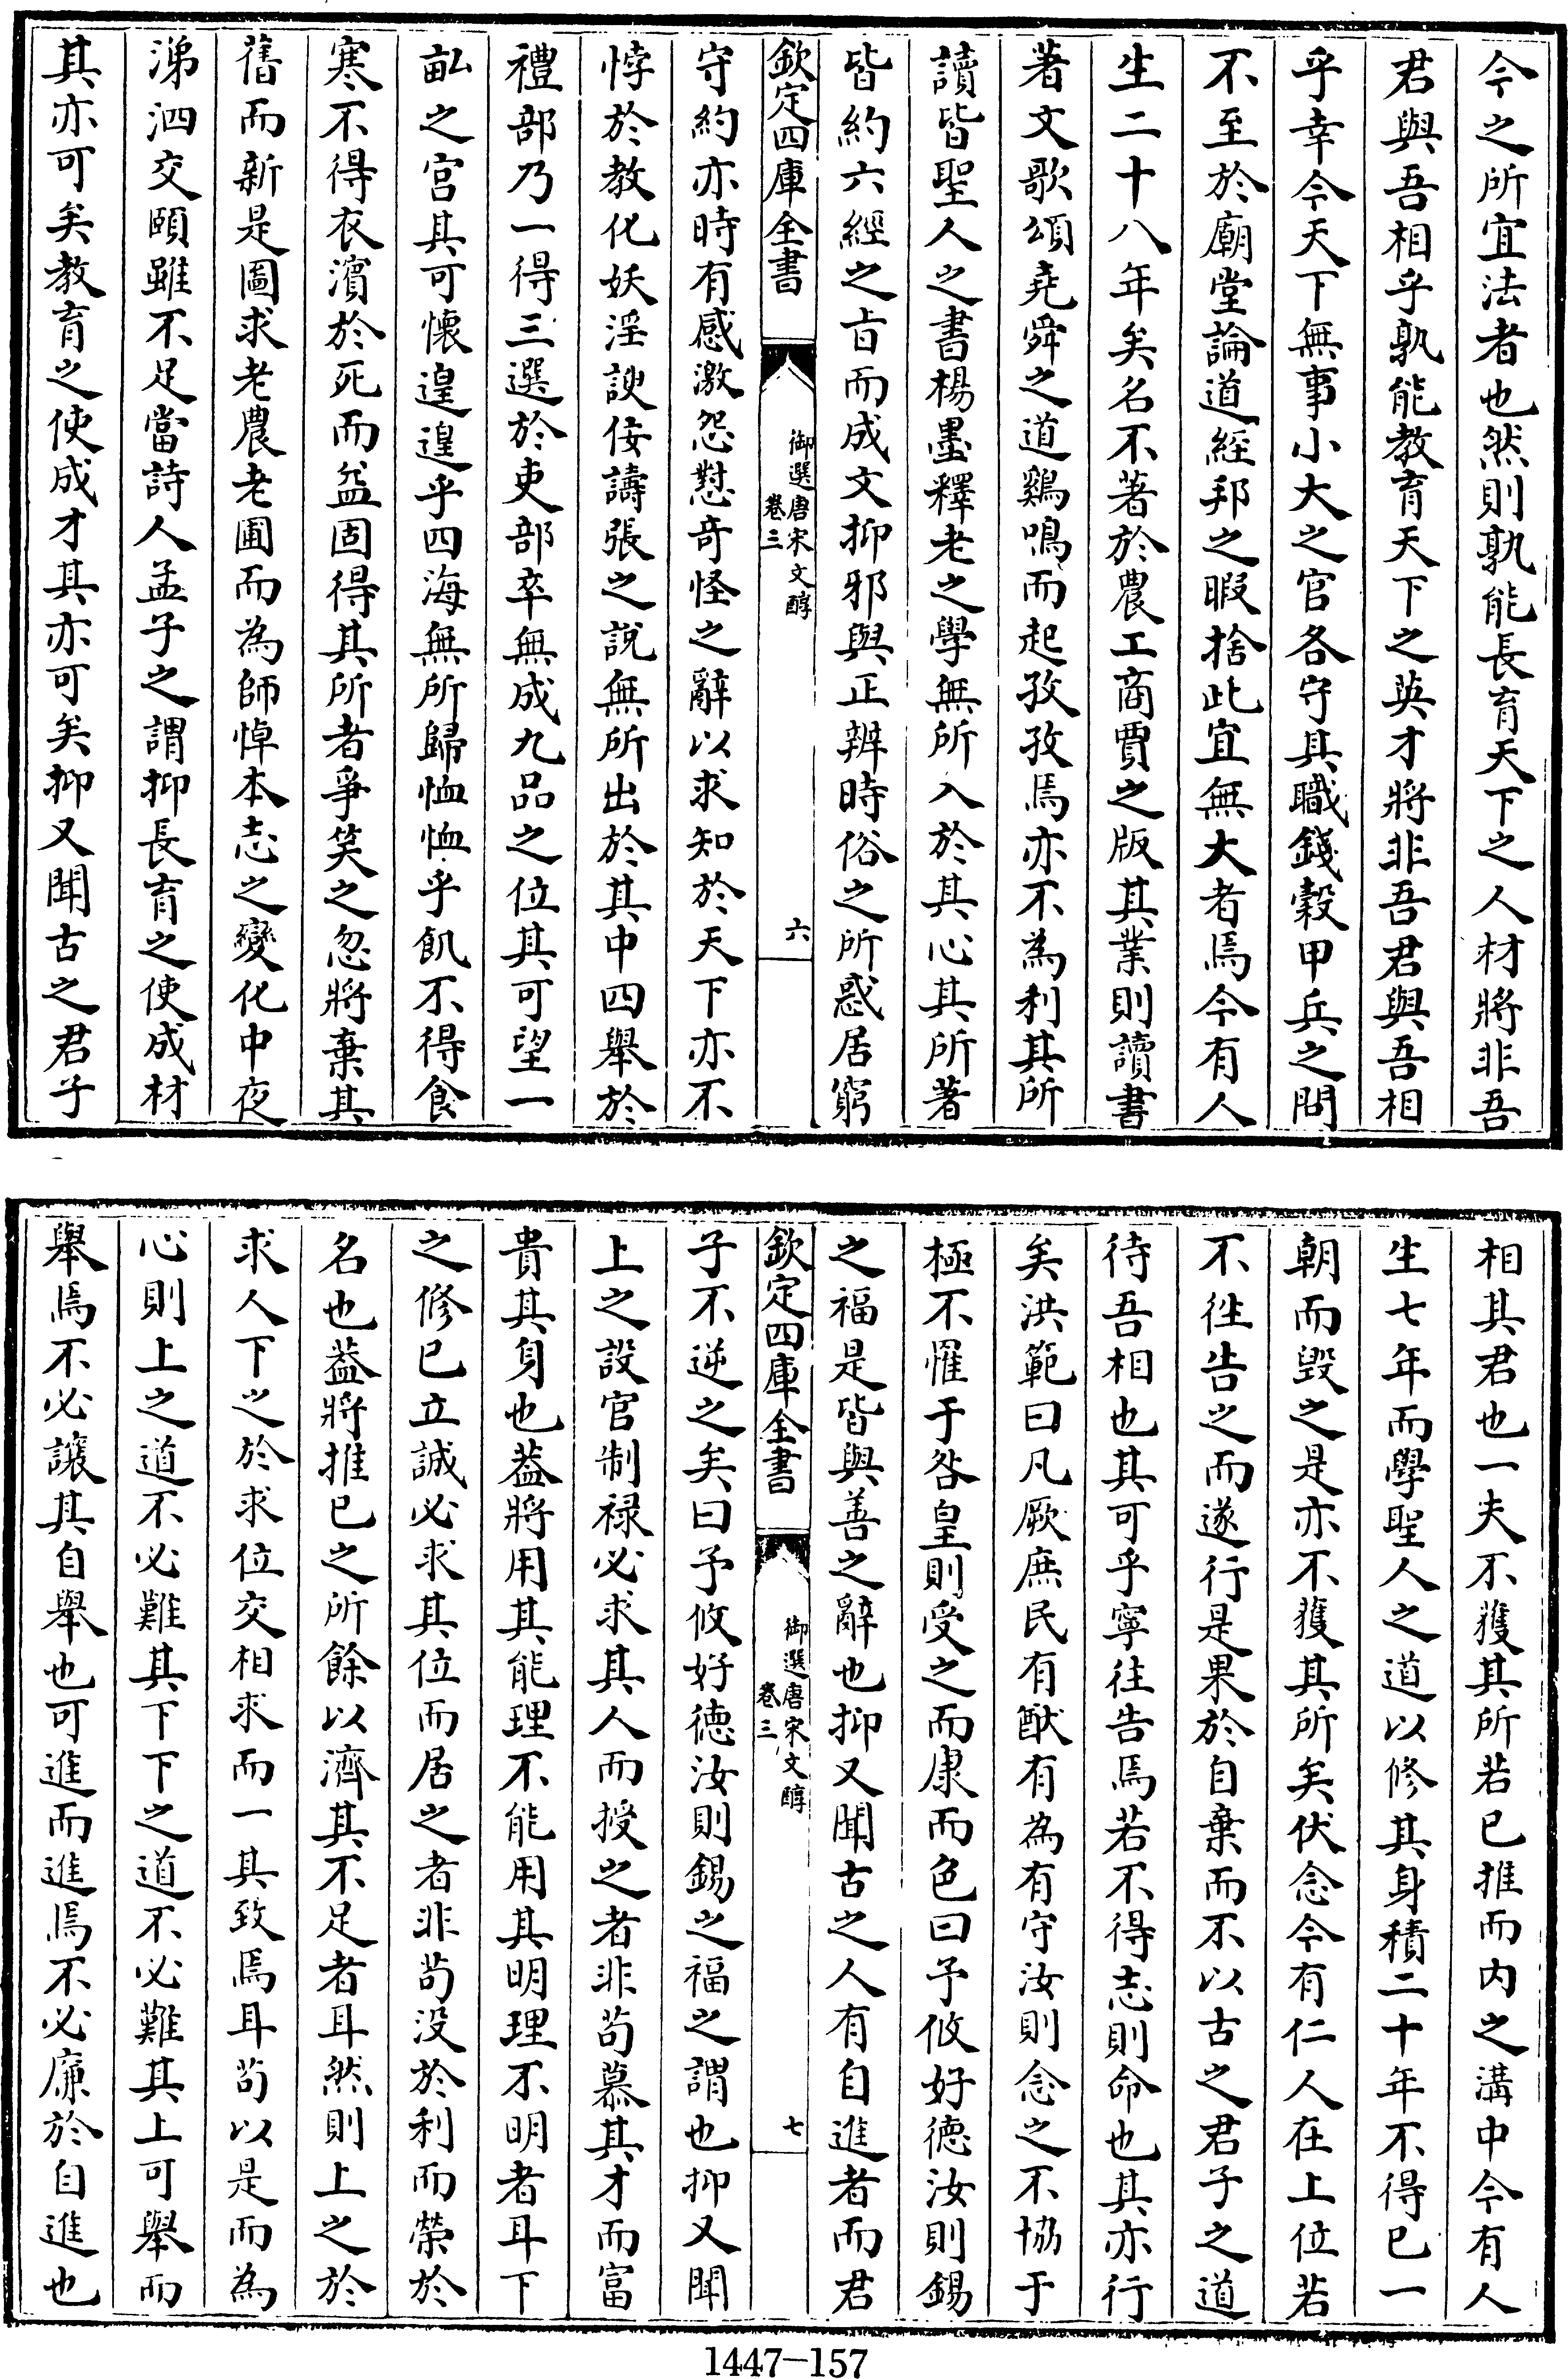 今之所宜法者也然則孰能長育天下之人材將非吾
君與吾相乎孰能教育天下之英才將非吾君與吾相
乎幸今天下無事小大之官各守其職錢穀甲兵之問
不至於廟堂論道經邦之暇捨此宜無大者焉今有人
生二十八年矣名不著於農工商賈之版其業則讀書
著文歌頌堯舜之道鷄鳴而起孜孜焉亦不為利其所
讀皆聖人之書楊墨釋老之學無所入於其心其所著
皆約六經之旨而成文抑邪與正辨時俗之所惑居窮
欽定四庫全書
御選唐宋文醇
卷三
六
守約亦時有感激怨懟奇怪之辭以求知於天下亦不
悖於教化妖淫諛佞譸張之說無所出於其中四舉於
禮部乃一得三選於吏部卒無成九品之位其可望一
畝之宫其可懷遑遑乎四海無所歸恤恤乎飢不得食
寒不得衣濱於死而益固得其所者爭笑之忽將棄其
舊而新是圖求老農老圃而為師悼本志之變化中夜
涕泗交頤雖不足當詩人孟子之謂抑長育之使成材
其亦可矣教育之使成才其亦可矣抑又聞古之君子
相其君也一夫不獲其所若已推而内之溝中今有人
生七年而學聖人之道以修其身積二十年不得已一
朝而毁之是亦不獲其所矣伏念今有仁人在上位若
不徃告之而遂行是果於自棄而不以古之君子之道
待吾相也其可乎寧往告焉若不得志則命也其亦行
矣洪範曰凡厥庶民有猷有為有守汝則念之不協于
極不罹于咎皇則受之而康而色曰予攸好德汝則錫
之福是皆與善之辭也抑又聞古之人有自進者而君
欽定四庫全書
御選唐宋文醇
卷三
七
子不逆之矣曰予攸好德汝則錫之福之謂也抑又聞
上之設官制禄必求其人而授之者非苟慕其才而富
貴其身也葢將用其能理不能用其明理不明者耳下
之修已立誠必求其位而居之者非苟没於利而榮於
名也葢將推已之所餘以濟其不足者耳然則上之於
求人下之於求位交相求而一其致焉耳苟以是而為
心則上之道不必難其下下之道不必難其上可舉而
舉焉不必讓其自舉也可進而進焉不必廉於自進也
1447-157